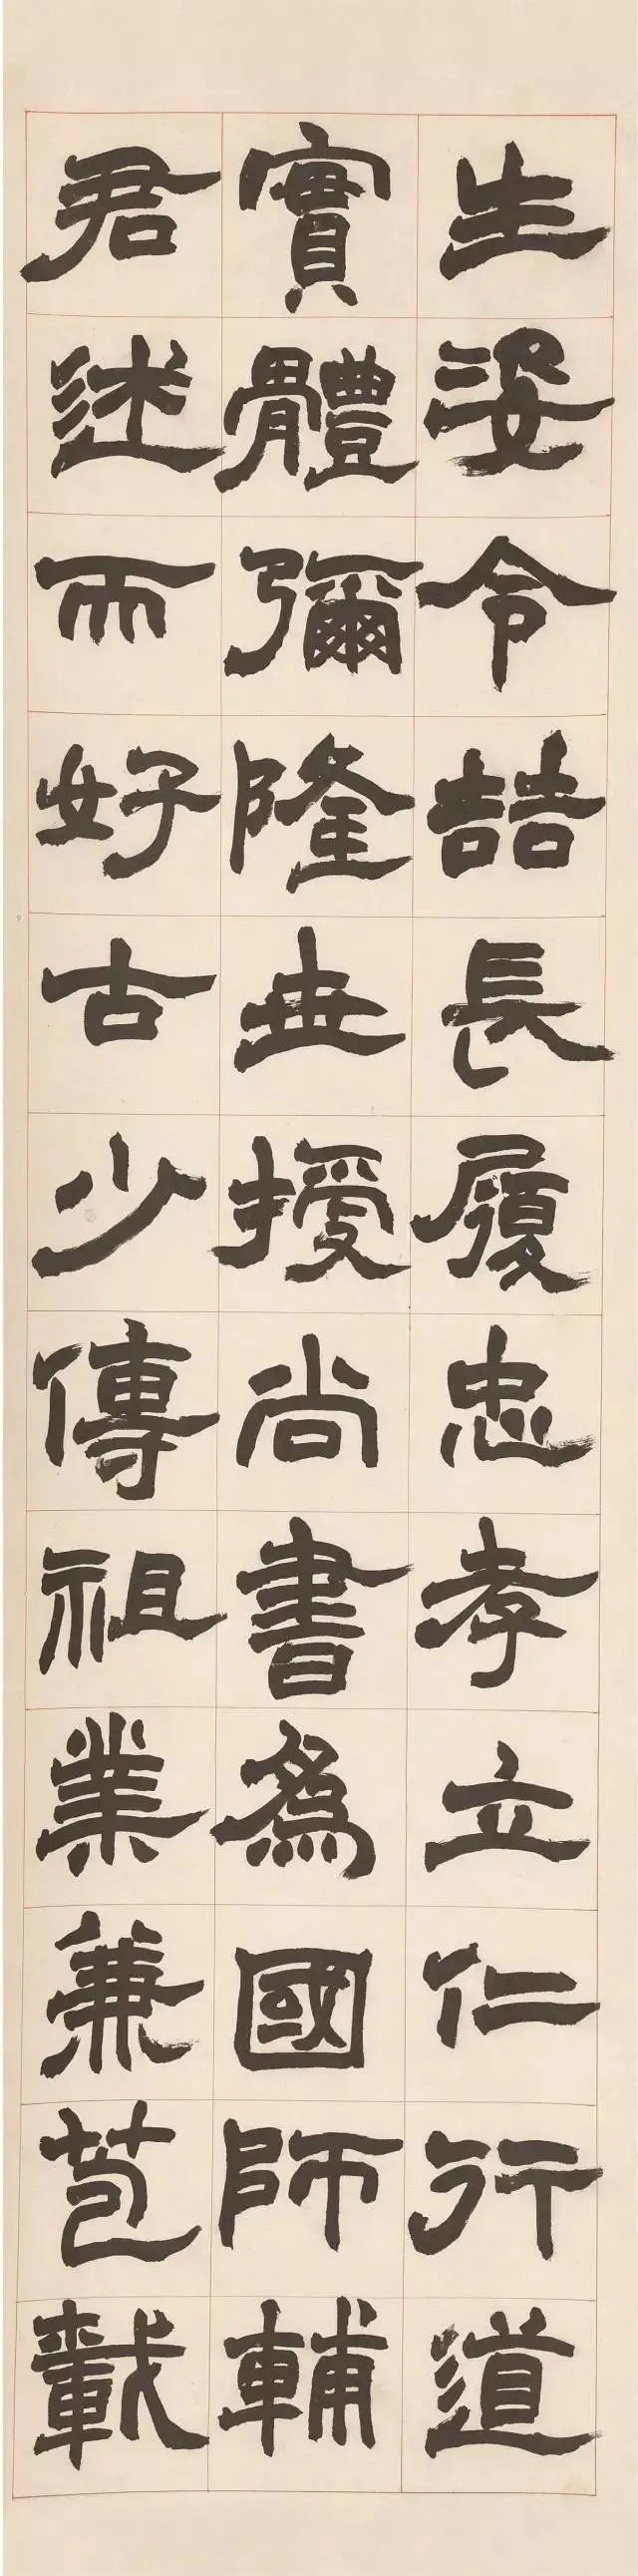 生姿令喆長履忠孝立仁行道
實體彌隆世授尚書爲國師輔
君述而好古少傳祖業兼苞載